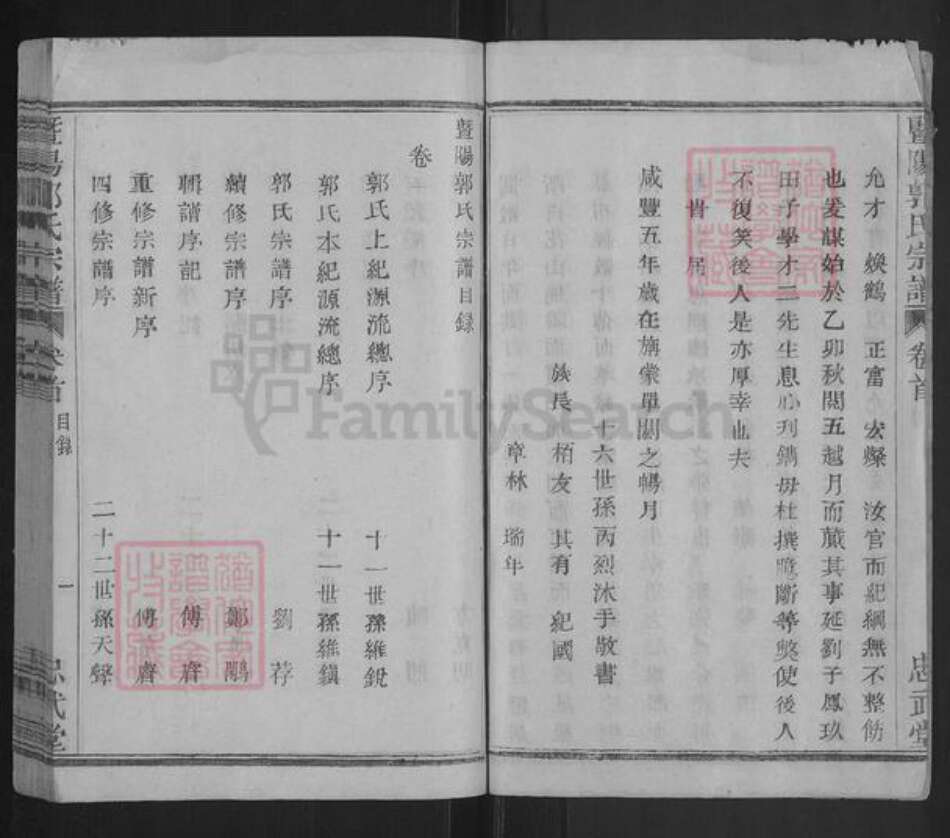 暨陽郭氏宗譜
卷首
忠武堂
允才 煥鶴 正富 宏燦 汝官而紀綱無不整飭
也爰謀始於乙卯秋閱五越月而蕆其事延劉子鳳玖
田子學才三先生息心刋鐫毋杜撰臆斷等獘使後人
不復笑後人是亦厚幸也夫
咸豐五年歲在旃蒙單閼之暢月
十六世孫丙烈沐手敬書
族長 栢友 其有 紀國
章林 瑞年
暨陽郭氏宗譜目錄
卷首
郭氏上紀源流總序 十一世孫維銳
郭氏本紀源流總序 十一世孫維鎮
郭氏宗譜序 劉荐
續修宗譜序 鄭鵰
輯譜序記 傅齊
重修宗譜新序 傅齊
四修宗譜序 二十二世孫天聲
暨陽郭氏宗譜
卷首
目錄
一
忠武堂
FamilySearch